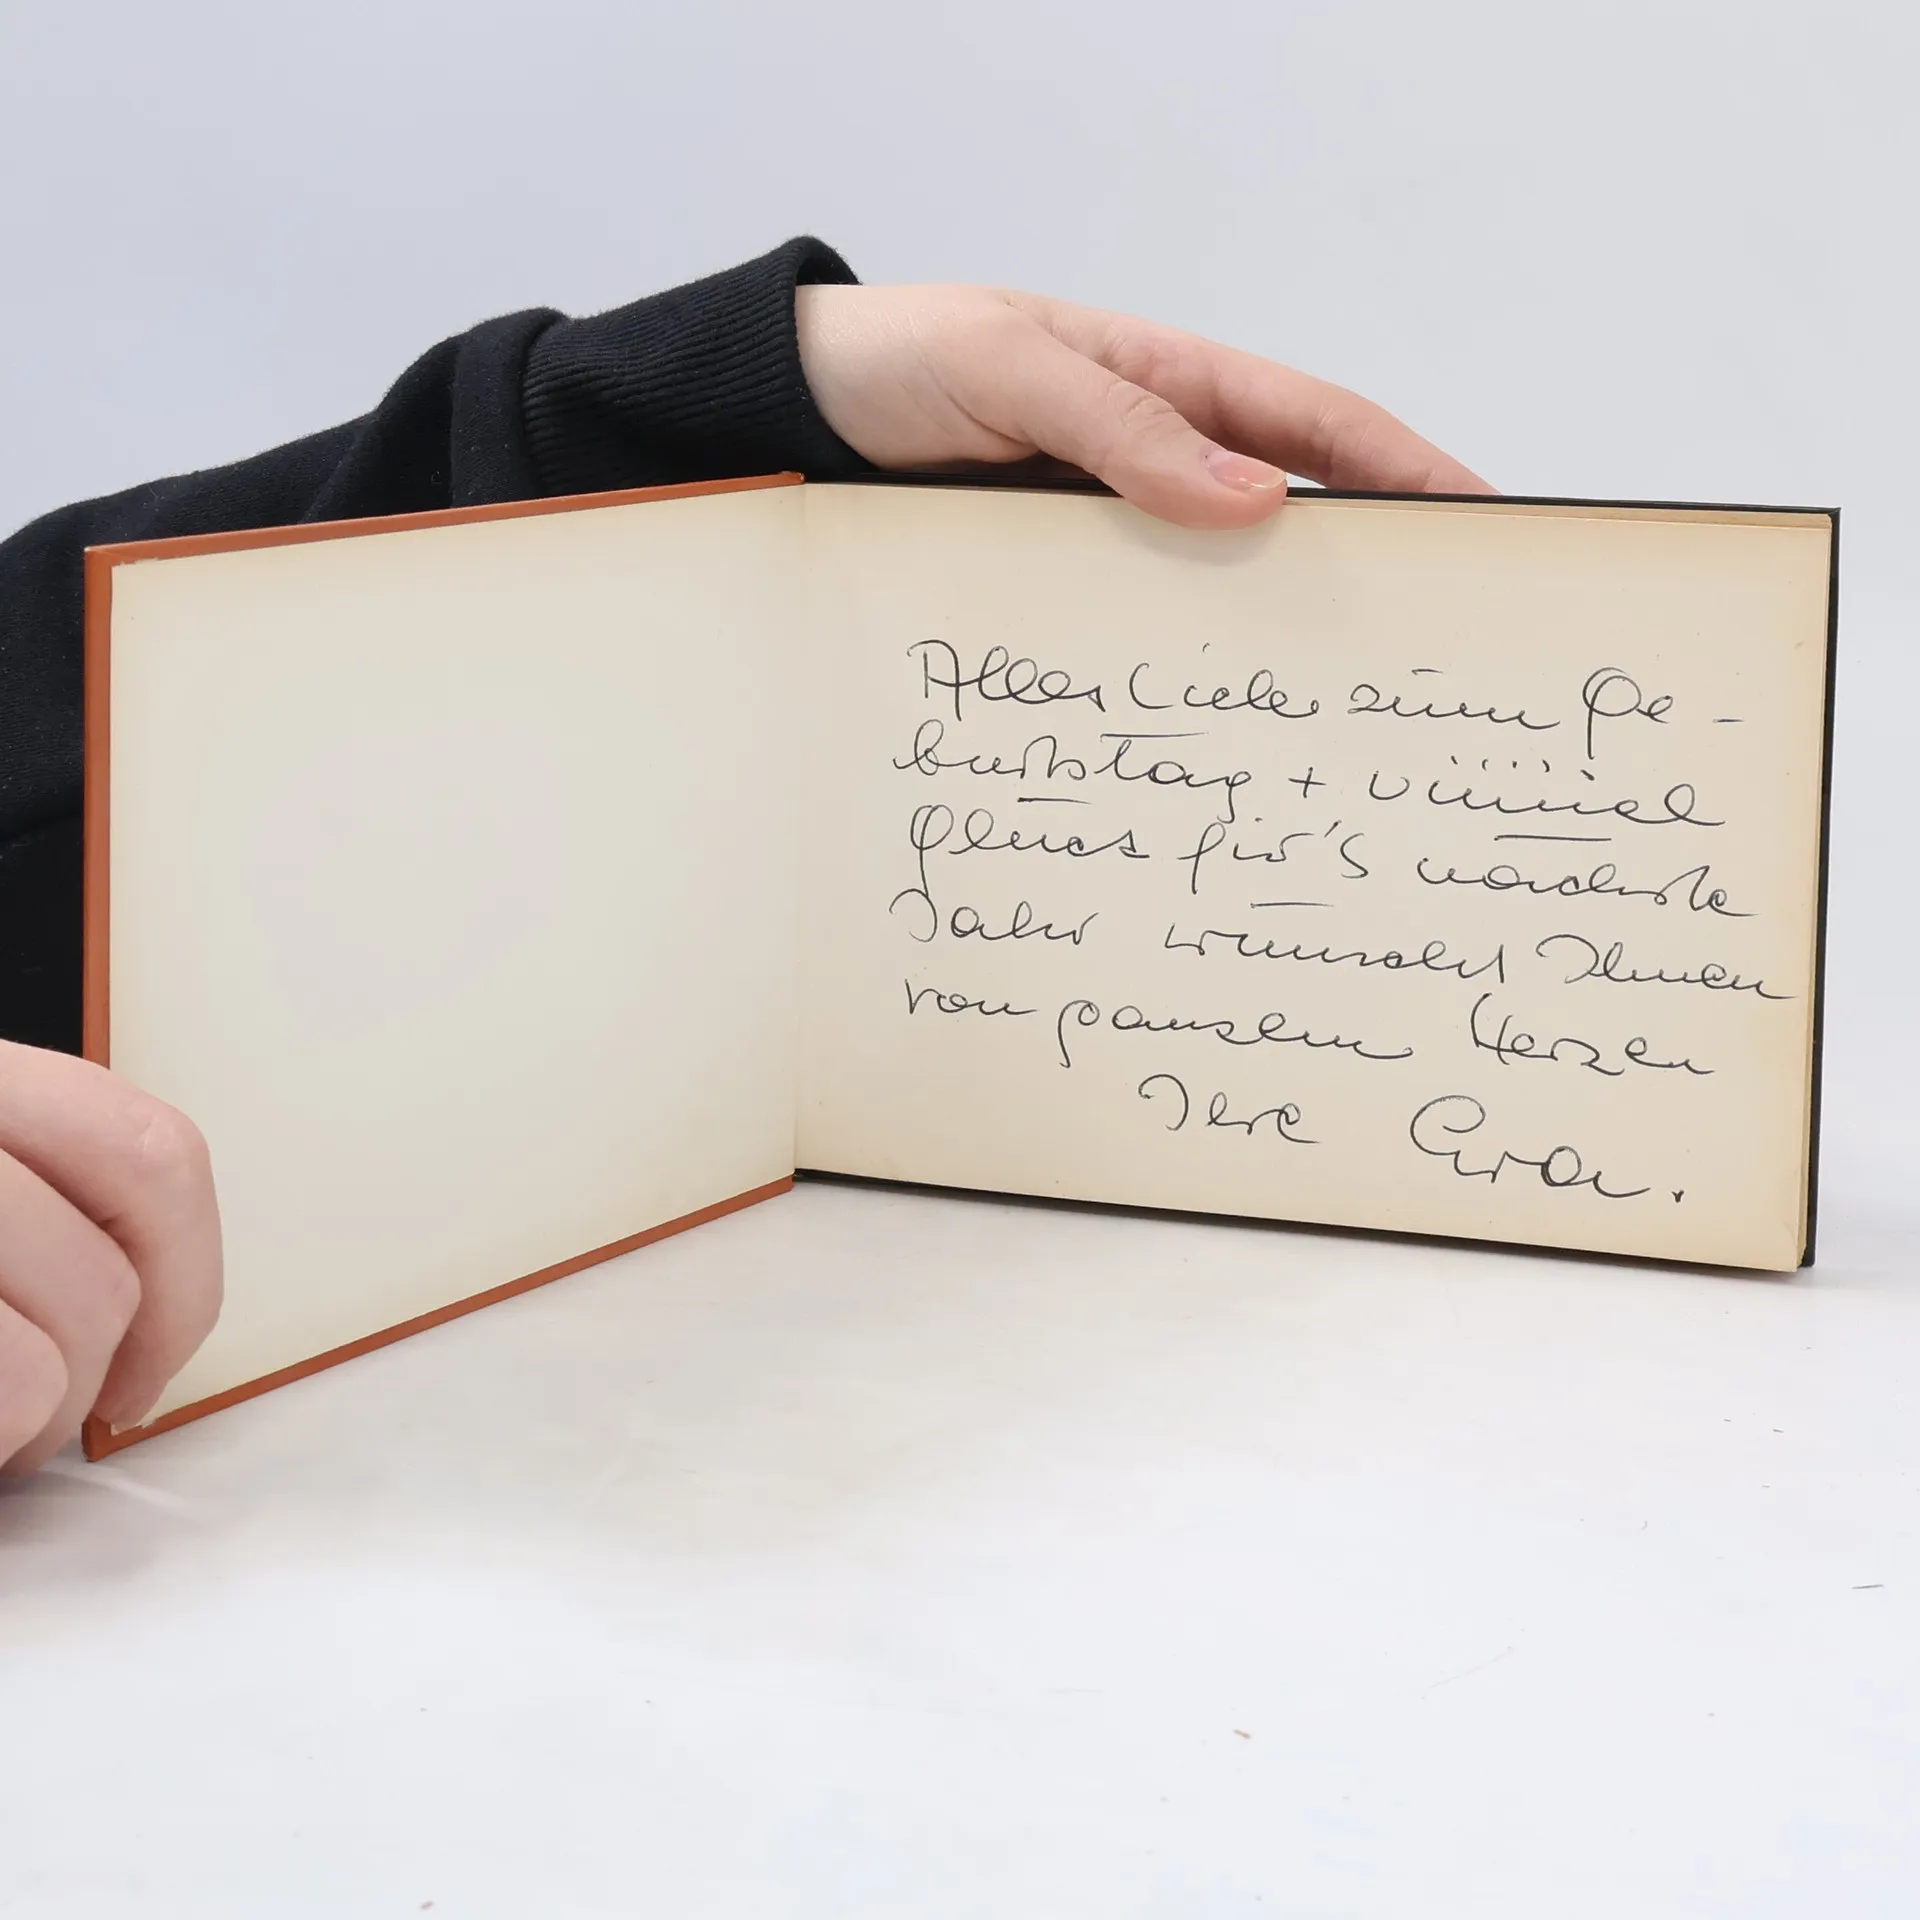 Alles Liebe zum Ge-
burtstag + viiiiiel
Glück für's nächste
Jahr wünscht Ihnen
von ganzem Herzen
Ihre Eva.